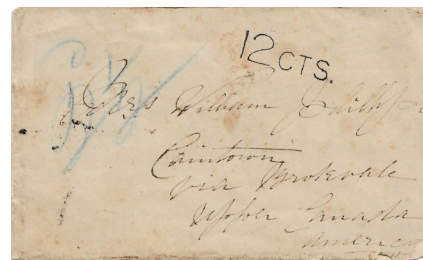 12 CTS.
Mrs William
Caintown
via Brokvale
Upper Canada
america